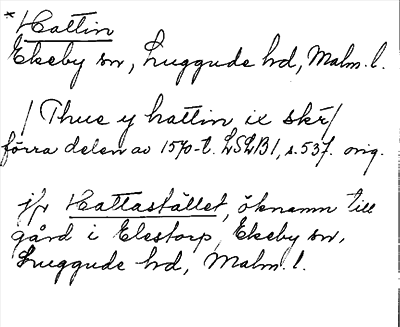 * Hattin
Ekeby sn, Luggude hd, Malm. l.
/ Thue y hattin ix skr /
förra delen av 1570-t. LSLB1, s. 537. orig.
jfr Hattastället, öknamn till
gård i Elestorp, Ekeby sn,
Luggude hd, Malm. l.